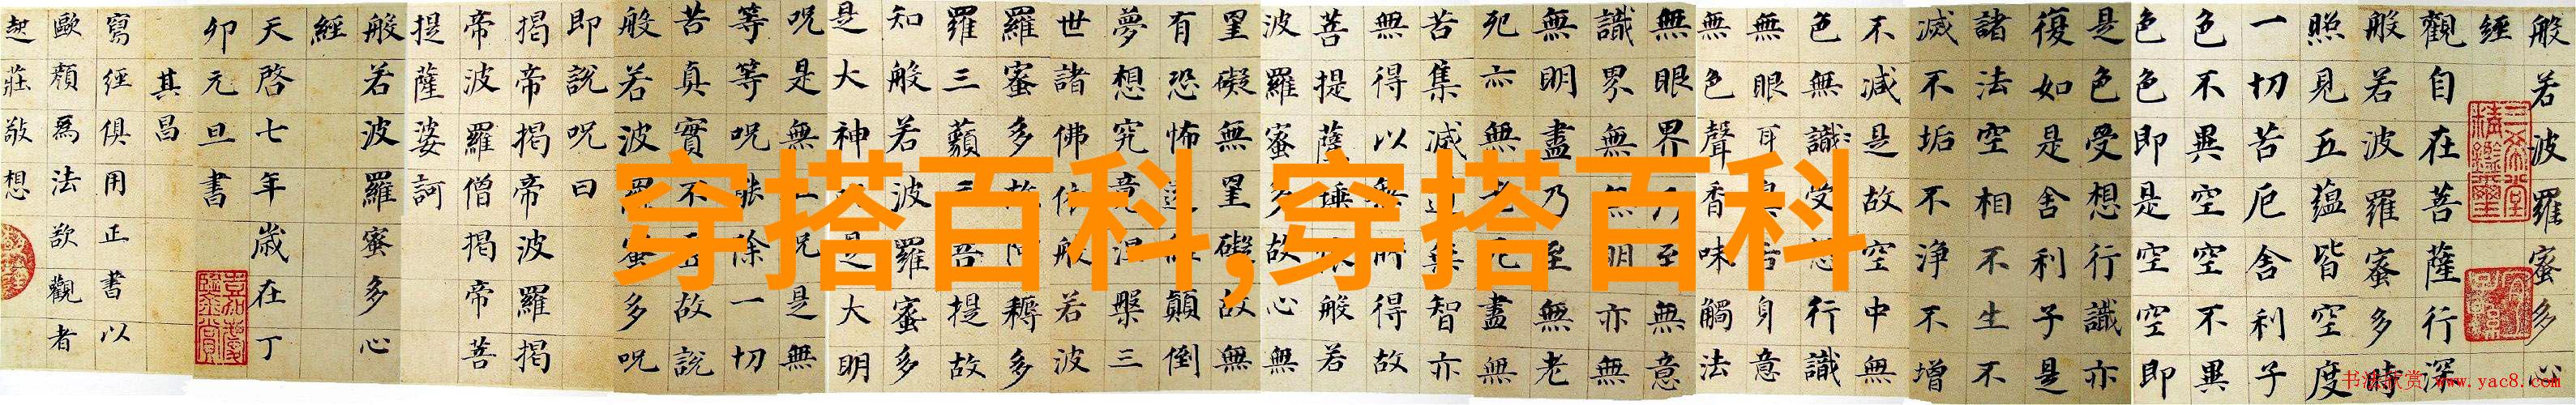 般若波羅蜜多心
經
觀自在菩薩行深
般若波羅蜜多時
照見五蘊皆空度
一切苦厄舍利子
色不異空空不異
色色即是空空即
是色受想行識亦
復如是舍利子是
諸法空相不生不
滅不垢不淨不增
不減是故空中無
色無識受想行識
無眼耳鼻舌身意
無色聲香味觸法
無眼界乃至無意
識界無無明亦無
無明盡乃至無老
死亦無老死盡無
苦集滅道無智亦
無得以無所得故
菩提薩埵依般若
波羅蜜多故心無
罣礙無罣礙故無
有恐怖遠離顛倒
夢想究竟涅槃三
世諸佛依般若波
羅蜜多故阿耨多
羅三藐三菩提故
知般若波羅蜜多
是大神咒是大明
咒是無上咒是無
等等咒能除一切
苦真實不虛故說
般若波羅蜜多咒
即說咒曰
揭帝揭帝波羅揭
帝波羅僧揭帝菩
提薩婆訶
般若波羅蜜多心
經
天啓七年歲在丁
卯元旦書
其昌
寫經俱用正書以
歐顏爲法欲觀者
起莊敬想
三希堂精鑑璽
穿搭百科,穿搭百科
书法欣赏 www.yac8.com